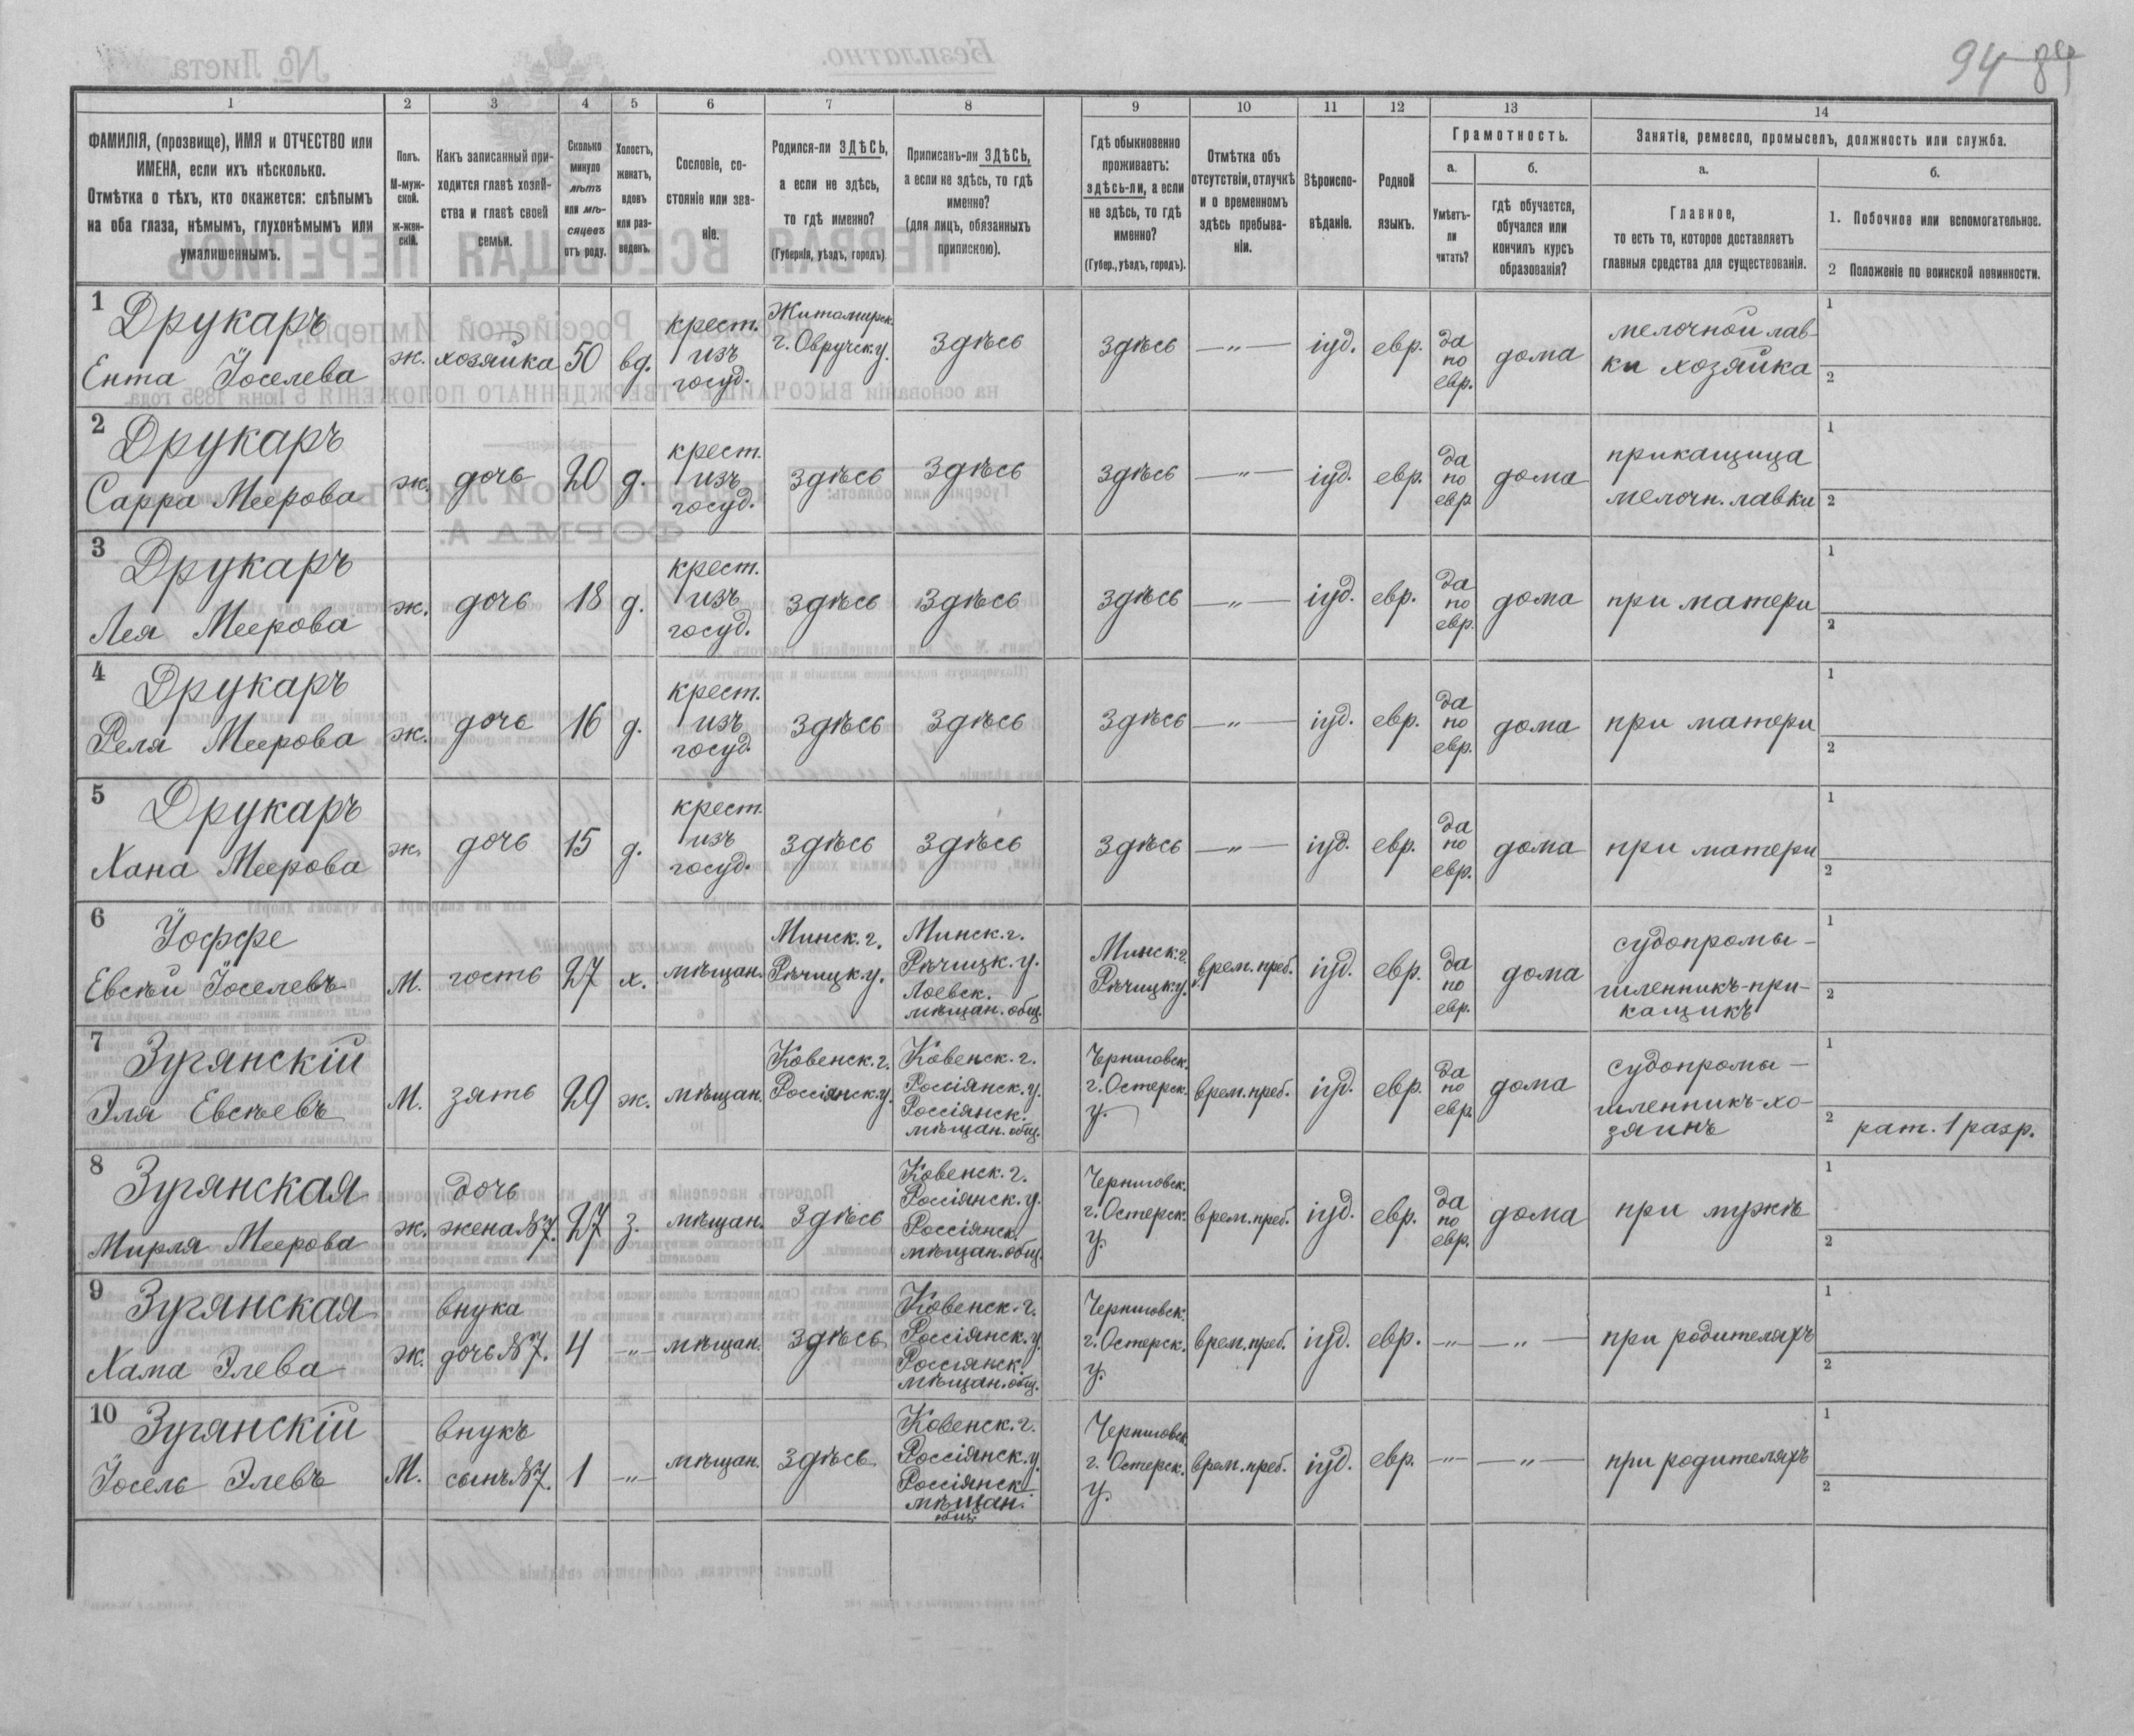 94 89
1 2 3 4 5 6 7 8 9 10 11 12 13 14
ФАМИЛІЯ, (прозвище), ИМЯ и ОТЧЕСТВО или
ИМЕНА, если ихъ нѣсколько.
Отмѣтка о тѣхъ, кто окажется: слѣпымъ
на оба глаза, нѣмымъ, глухонѣмымъ или
умалишеннымъ.
Полъ.
М-муж-
ской.
ж-жен-
скій.
Какъ записанный при-
ходится главѣ хозяй-
ства и главѣ своей
семьи.
Сколько
минуло
лѣтъ
или мѣ-
сяцевъ
отъ роду.
Холостъ,
женатъ,
вдовъ
или раз-
веденъ.
Сословіе, со-
стояніе или зва-
ніе.
Родился-ли ЗДѢСЬ,
а если не здѣсь,
то гдѣ именно?
(Губернія, уѣздъ, городъ)
Приписанъ-ли ЗДѢСЬ,
а если не здѣсь, то гдѣ
именно?
(для лицъ, обязанныхъ
припискою).
Гдѣ обыкновенно
проживаетъ:
здѣсь-ли, а если
не здѣсь, то гдѣ
именно?
(Губер., уѣздъ, городъ).
Отмѣтка объ
отсутствіи, отлучкѣ
и о временномъ
здѣсь пребыва-
ніи.
Вѣроиспо-
вѣданіе.
Родной
языкъ.
Грамотность.
а.
Умѣетъ-
ли
читать?
б.
гдѣ обучается,
обучался или
кончилъ курсъ
образованія?
Занятіе, ремесло, промыселъ, должность или служба.
а.
Главное,
то есть то, которое доставляетъ
главныя средства для существованія.
б.
1. Побочное или вспомогательное.
2 Положеніе по воинской повинности.
1 Друкаръ
Ента Іоселева
ж.
хозяйка
50
вд.
крест.
изъ
госуд.
Житомирск.
г. Овручск. у.
здѣсь
здѣсь
—„—
іуд.
евр.
да
по
евр.
дома
мелочной лав-
ки хозяйка
1
2
2 Друкаръ
Сарра Меерова
ж.
дочь
20
д.
крест.
изъ
госуд.
здѣсь
здѣсь
здѣсь
—„—
іуд.
евр.
да
по
евр.
дома
прикащица
мелочн. лавки
1
2
3 Друкаръ
Лея Меерова
ж.
дочь
18
д.
крест.
изъ
госуд.
здѣсь
здѣсь
здѣсь
—„—
іуд.
евр.
да
по
евр.
дома
при матери
1
2
4 Друкаръ
Реля Меерова
ж.
дочь
16
д.
крест.
изъ
госуд.
здѣсь
здѣсь
здѣсь
—„—
іуд.
евр.
да
по
евр.
дома
при матери
1
2
5 Друкаръ
Хана Меерова
ж.
дочь
15
д.
крест.
изъ
госуд.
здѣсь
здѣсь
здѣсь
—„—
іуд.
евр.
да
по
евр.
дома
при матери
1
2
6 Іоффе
Евсѣй Іоселевъ
М.
гость
27
х.
мѣщан.
Минск. г.
Рѣчицк. у.
Минск. г.
Рѣчицк. у.
Лоевск.
мѣщан. общ.
Минск. г.
Рѣчицк. у.
врем. преб.
іуд.
евр.
да
по
евр.
дома
судопромы-
шленникъ-при-
кащикъ
1
2
7 Зугянскій
Эля Евсѣевъ
М.
зять
29
ж.
мѣщан.
Ковенск. г.
Россіянск. у.
Ковенск. г.
Россіянск. у.
Россіянск.
мѣщан. общ.
Черниговск.
г. Остерск.
у.
врем. преб.
іуд.
евр.
да
по
евр.
дома
судопромы-
шленникъ-хо-
зяинъ
1
2 рат. 1 разр.
8 Зугянская
Мирля Меерова
ж.
дочь
жена №7.
27
з.
мѣщан.
здѣсь
Ковенск. г.
Россіянск. у.
Россіянск.
мѣщан. общ.
Черниговск.
г. Остерск.
у.
врем. преб.
іуд.
евр.
да
по
евр.
дома
при мужѣ
1
2
9 Зугянская
Хама Элева
ж.
внука
дочь №7.
4
—„—
мѣщан.
здѣсь
Ковенск. г.
Россіянск. у.
Россіянск.
мѣщан. общ.
Черниговск.
г. Остерск.
у.
врем. преб.
іуд.
евр.
—„—
—„—
при родителяхъ
1
2
10 Зугянскій
Іосель Элевъ
М.
внукъ
сынъ №7.
1
—„—
мѣщан.
здѣсь
Ковенск. г.
Россіянск. у.
Россіянск.
мѣщан.
общ.
Черниговск.
г. Остерск.
у.
врем. преб.
іуд.
евр.
—„—
—„—
при родителяхъ
1
2